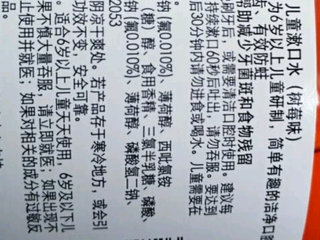 儿童漱口水（树莓味）
为6岁以上儿童研制，简单有趣的洁净口
、有效防蛀
帮助减少牙菌斑和食物残留
刷牙后，或需要清洁口腔时使用。建议每
持续漱口60秒后吐出，请勿吞服。要达到
后30分钟内请勿进食或喝水。儿童需要在
钠(氟0.010%)、薄荷醇、西吡氯铵
(糖)醇、食用香精、三氯半乳糖、磷酸、
钠(氟0.010%)、薄荷醇、磷酸氢二钠、
2053
阴凉干爽处。若产品存于寒冷地方，或会引
功效不变，安全可靠。
。适合6岁以上儿童天天使用，6岁及以下儿
果不慎大量吞服，请立即就医；如果出现不
止使用并就医；如果对相关的成分有过敏反
品。